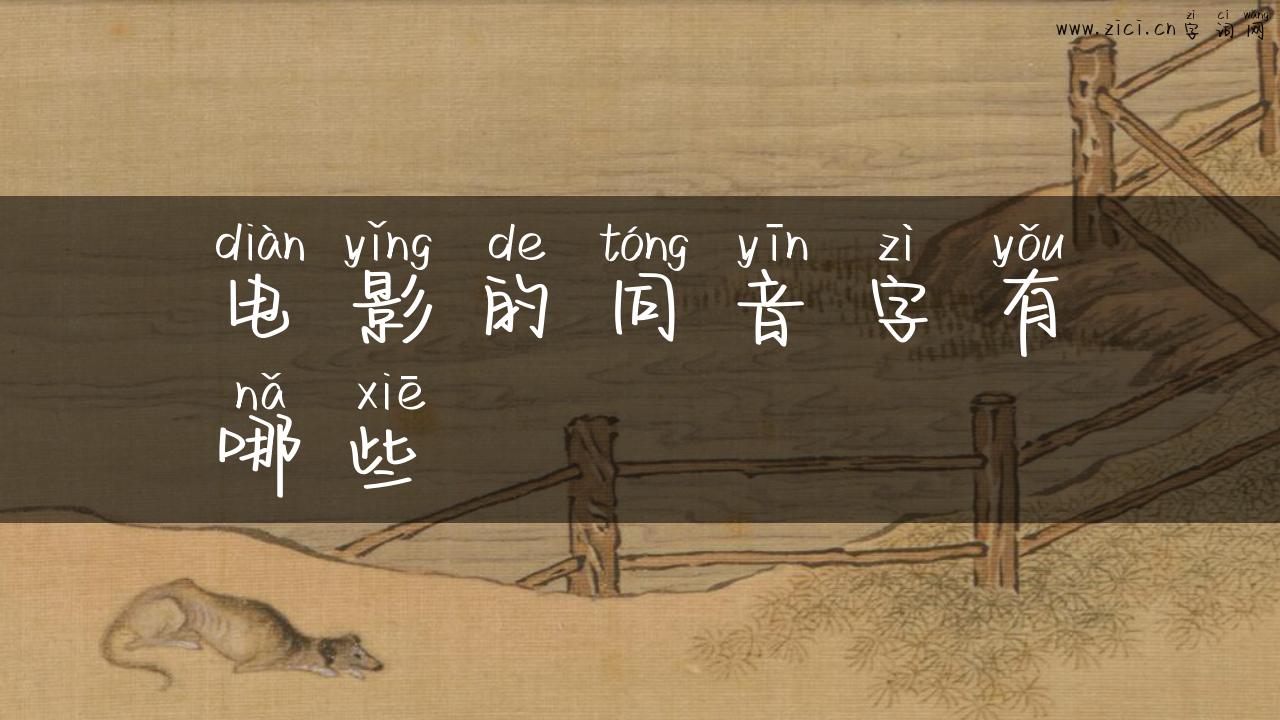 zì cí wǎng
www.zici.cn 字词网
diàn yǐng de tóng yīn zì yǒu
电影的同音字有
nǎ xiē
哪些